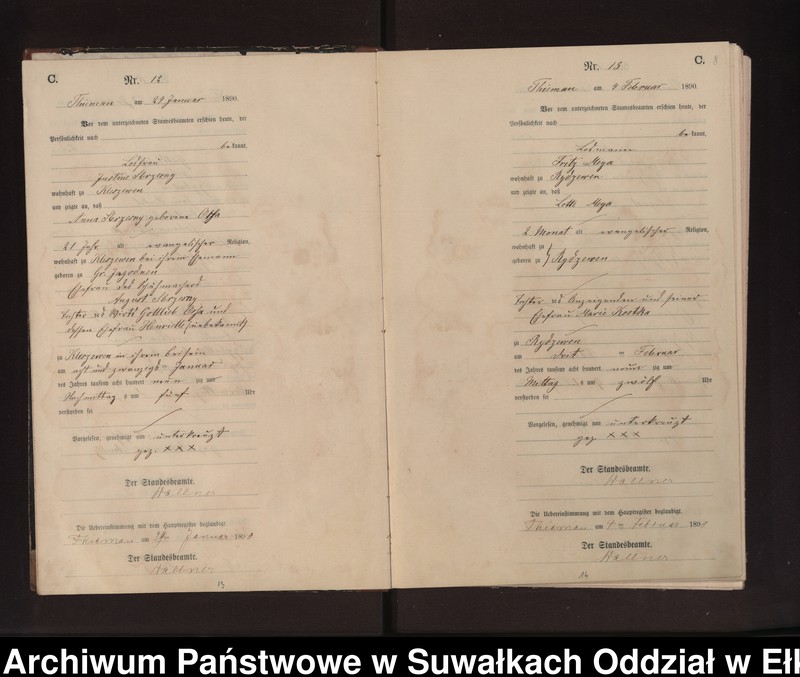 C.
Nr. 12
am 29 Januar 1890.
Vor dem unterzeichneten Standesbeamten erschien heute, der
Persönlichkeit nach
be kannt,
Losfrau
Justine
wohnhaft zu Kleszewen
und zeigte an, daß
Anna geborene
21 Jahr alt evangelischer Religion,
wohnhaft zu Kleszewen bei ihrem Ehemann
geboren zu Gr. Jagodnen
Ehefrau des Schuhmachers
August
Tochter des Wirts Gottlieb und
dessen Ehefrau Henriette (unbekannt)
zu Kleszewen in ihrem beisein
am acht und zwanzigsten Januar
des Jahres tausend acht hundert neun zig und
Nachmittag s um fünf Uhr
verstorben sei
Vorgelesen, genehmigt und unterkreuzt
gez. XXX
Der Standesbeamte.
Die Uebereinstimmung mit dem Hauptregister beglaubigt.
am Januar 189
Der Standesbeamte.
13
C. 8
Nr. 15
am 4 Februar 1890
Vor dem unterzeichneten Standesbeamten erschien heute, der
Persönlichkeit nach
be kannt,
Losmann
Fritz Moga
wohnhaft zu Rydzewen
und zeigte an, daß
Lotte Moga
2 Monat alt evangelischer Religion,
wohnhaft zu
geboren zu Rydzewen
Tochter des Anzeigenden und seiner
Ehefrau Marie Kostka
zu Rydzewen
am Februar
des Jahres tausend acht hundert neun zig und
Mittag s um zwölf Uhr
verstorben sei
Vorgelesen, genehmigt und unterkreuzt
gez XXX
Der Standesbeamte.
Die Uebereinstimmung mit dem Hauptregister beglaubigt.
am 4ten Februar 189
Der Standesbeamte.
14
Archiwum Państwowe w Suwałkach Oddział w Ełk